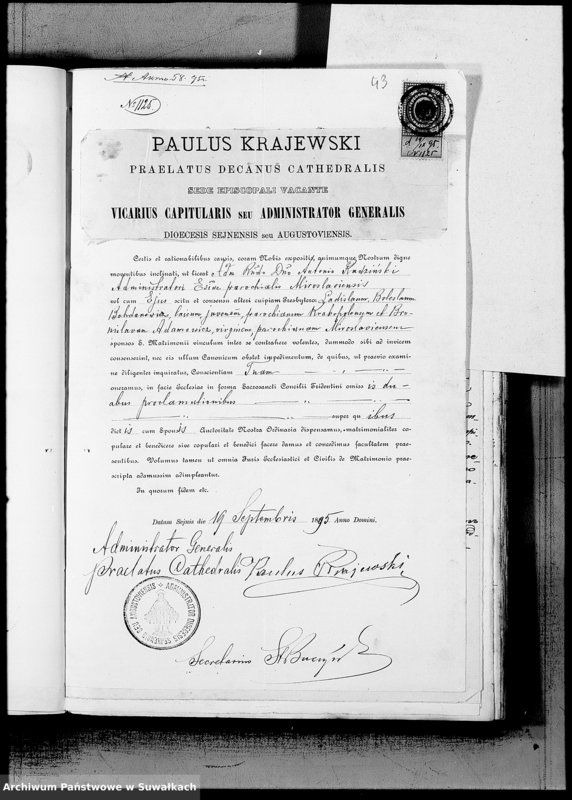 Ad Annum 58. 95.
43
No 1125
PAULUS KRAJEWSKI
PRAELATUS DECANUS CATHEDRALIS
SEDE EPISCOPALI VACANTE
VICARIUS CAPITULARIS SEU ADMINISTRATOR GENERALIS
DIOECESIS SEJNENSIS seu AUGUSTOVIENSIS.
Certis et rationabilibus causis, coram Nobis expositis, quinumque Nostrum digne
moventibus inclinati, ut liceat Adm Rndo Dno Antonio Radziński
Administratori Ecciae parochialis Miroslaviensis
vel cum Ejus scitu et consensu alteri cuipiam Presbytero, Ladislaum Boleslaum
Bohdanowicz, laicum juvenem, parochianum Krakopolensem et Bro-
nislavam Adamowicz, virginem, parochianam Miroslaviensem
sponsos S. Matrimonii vinculum inter se contrahere volentes, dummodo sibi ad invicem
consenserint, nec eis ullum Canonicum obstet impedimentum, de quibus, ut praevio exami-
ne diligenter inquiratur, Conscientiam Tuam
oneramus, in facie Ecclesiae in forma Sacrosancti Concilii Tridentini omiss is du-
abus proclamationibus
super qu ibus
dict is cum Sponsis Auctoritate Nostra Ordinaria dispensamus, matrimonialiter co-
pulare et benedicere sive copulari et benedici facere damus et concedimus facultatem prae-
sentibus. Volumus tamen ut omnia Juris Ecclesiastici et Civilis de Matrimonio prae-
scripta adamussim adimpleantur.
In quorum fidem etc.
Datum Sejnis die 19 Septembris 1895 Anno Domini.
Administrator Generalis
Praelatus Cathedralis Paulus Krajewski
ADMINISTRATOR DIOECESIS SEJNENSIS SEU AUGUSTOVIENSIS
Secretarius
Archiwum Państwowe w Suwałkach